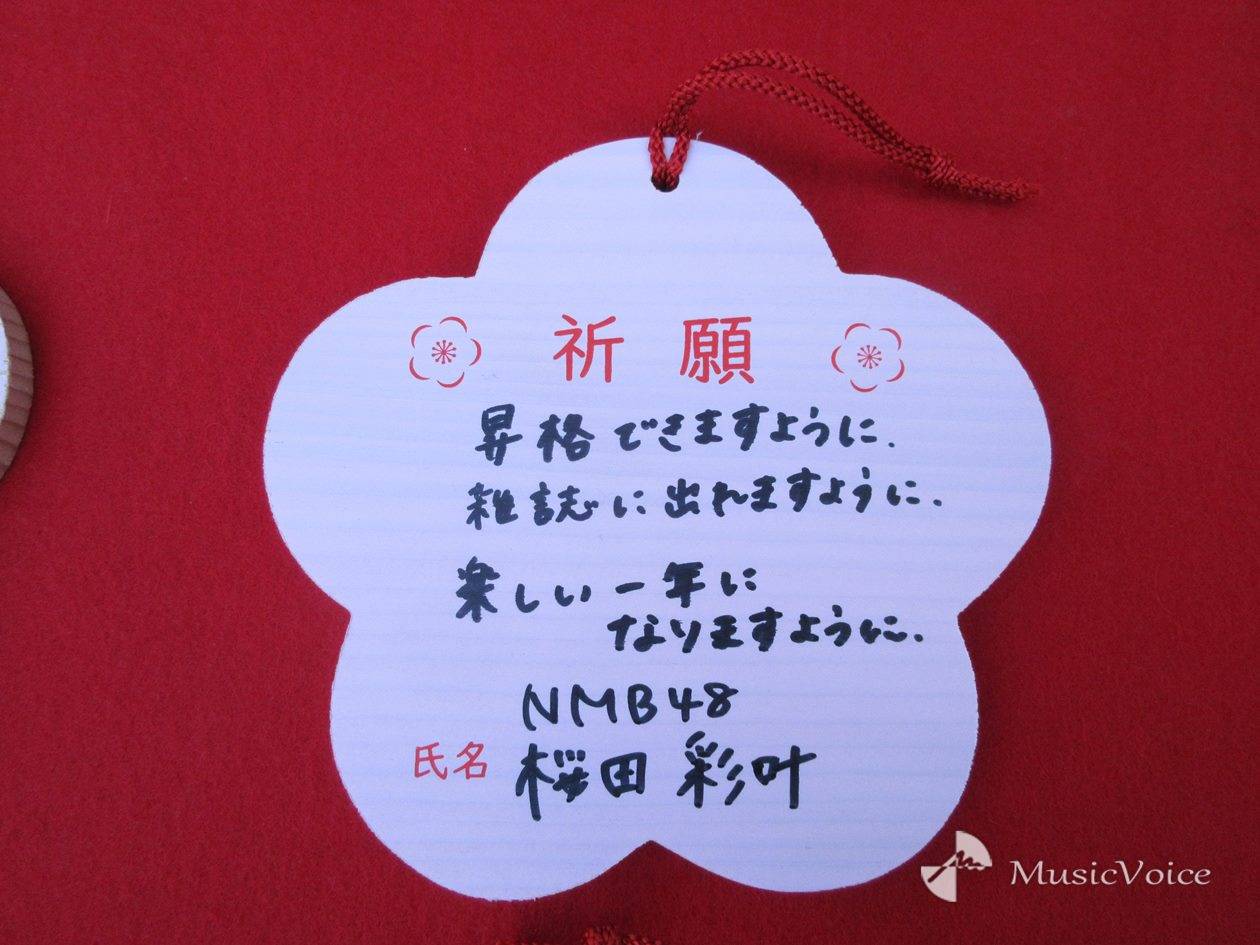 祈願
昇格できますように.
雑誌に出れますように.
楽しい一年に
なりますように.
NMB48
氏名 桜田 彩叶
MusicVoice